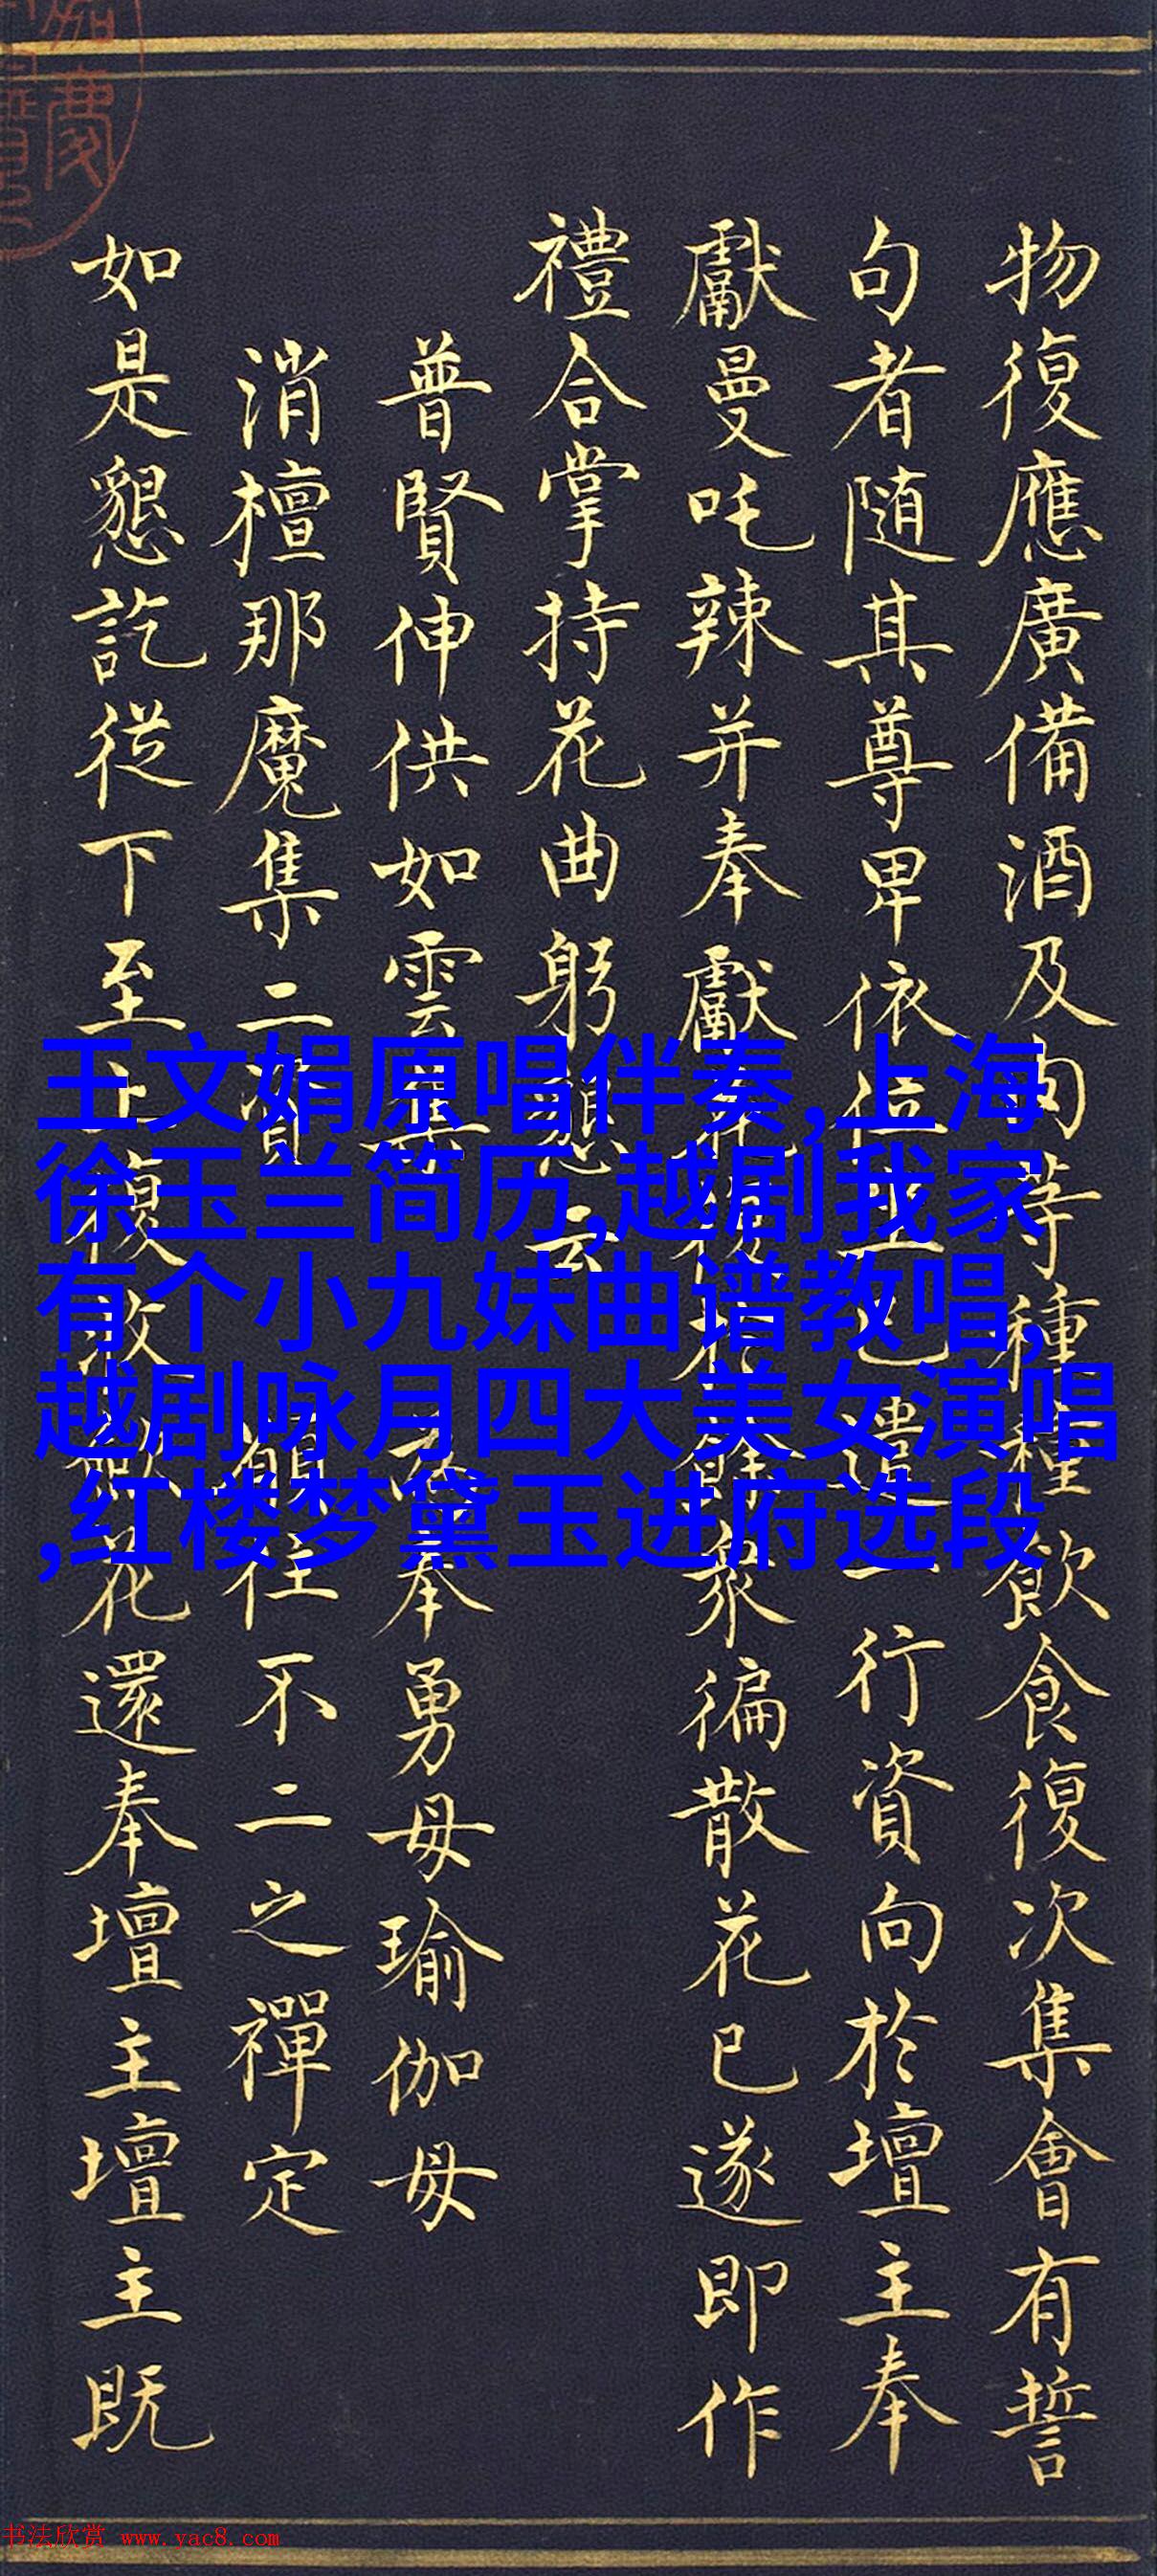 物復應廣備酒及肉等種種飲食復次集會有誓
句者随其尊卑依位坐已遣一行資向於壇主奉
獻曼吒辣并奉獻餘衆徧散花已遂即作
禮合掌持花曲躬懇云
普賢伸供如雲奉勇母瑜伽母
消檀那魔集二資 願住不二之禪定
如是懇訖從下至上復散獻花還奉壇主壇主既
王文娟原唱伴奏,上海
徐玉兰简历,越剧我家
有个小九妹曲谱教唱,
越剧咏月四大美女演唱
,红楼梦黛玉进府选段
书法欣赏 www.yac8.com